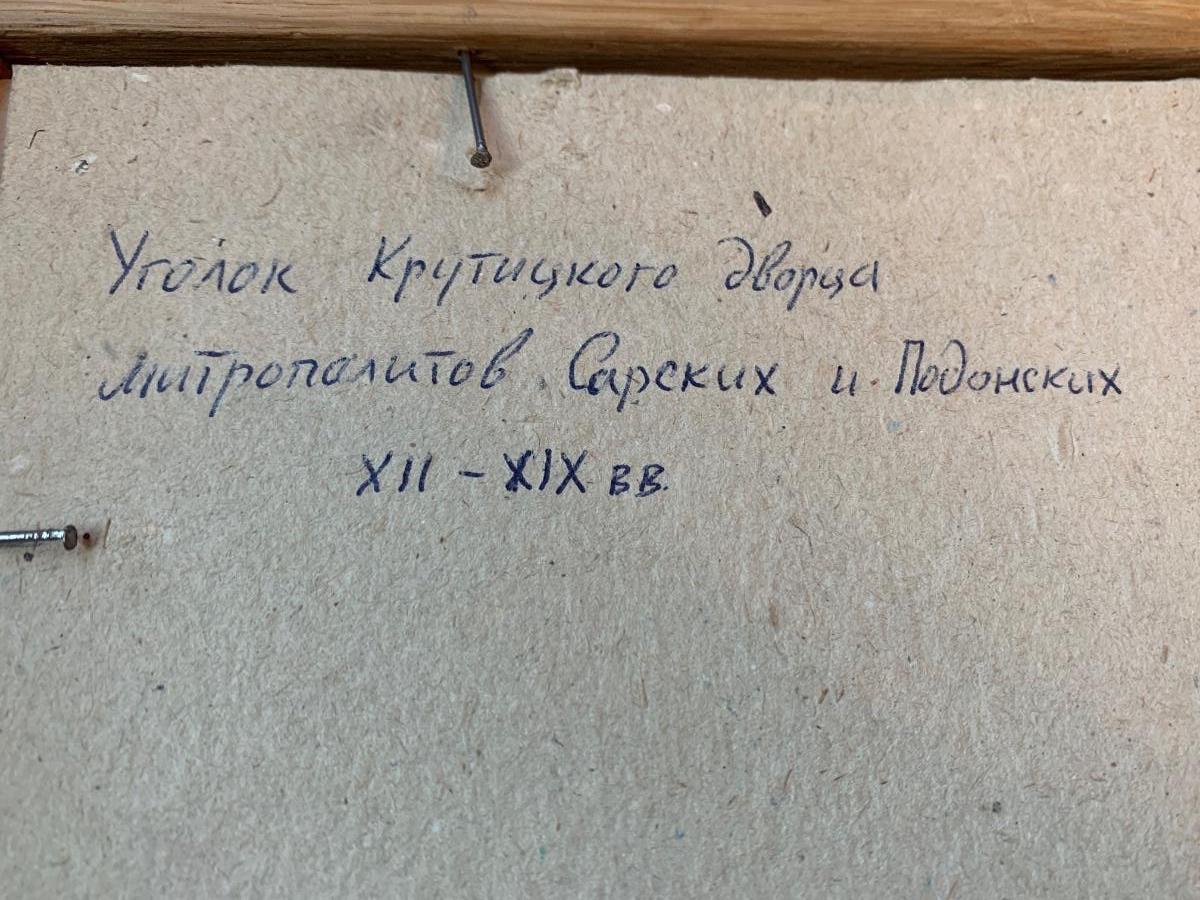 Уголок Крутицкого дворца
митрополитов Сарских и Подонских
XII - XIX вв.